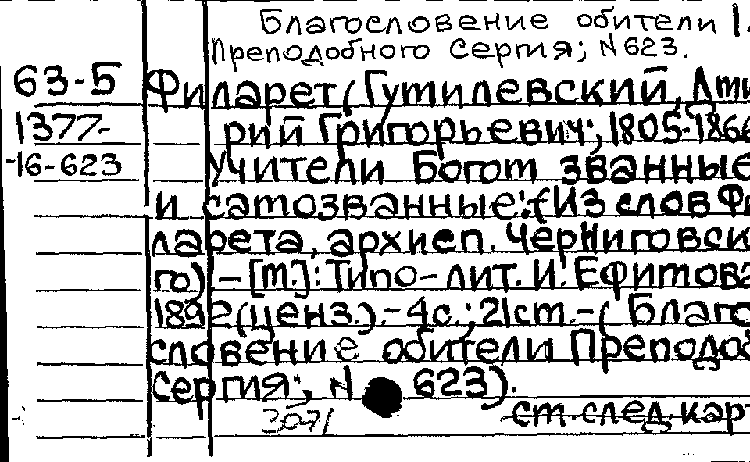 Благословение обители 1.
Преподобного Сергия; N 623.
63-5 Филарет (Гутилевский, Дми
1377- рий Григорьевич; 1805-1866
-16-623 Учители Богот званные
и самозванные: (Из слов Фи
ларета, архиеп. Черниговско
го) - [М.]: Типо-лит. И. Ефимова
1892 (ценз.). - 4 с.; 21 см. - ( Благо
словение обители Преподоб
Сергия; N 623).
3071 ст. след. карт